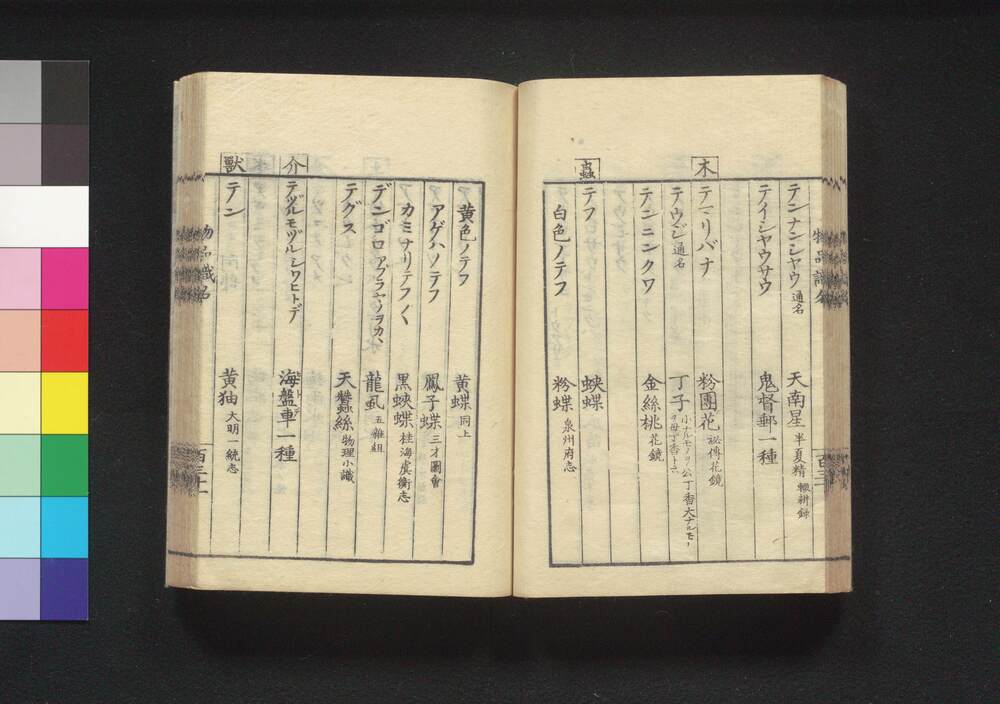 テンナンシヤウ 通名 天南星 半夏精 輟耕録
テイシヤウサウ 鬼督郵一種
木
テマリバナ 粉團花 秘傳花鏡
テウジ 通名 丁子 小ナルモノヲ公丁香大ナルモノ
ヲ母丁香ト云
テンニンクワ 金絲桃 花鏡
蟲
テフ 蛺蝶
白色ノテフ 粉蝶 泉州府志
黄色ノテフ 黄蝶 同上
アゲハノテフ 鳳子蝶 三才圖會
カミナリテフ〱 黒蛺蝶 桂海虞衡志
デンゴロ アブラムシノヲカヽ 龍虱 五雜組
テグス 天蠶絲 物理小識
介
テヅルモヅル シワヒトデ 海盤車一種
獸
テン 黄㹨 大明一統志
物品識名
百三十一